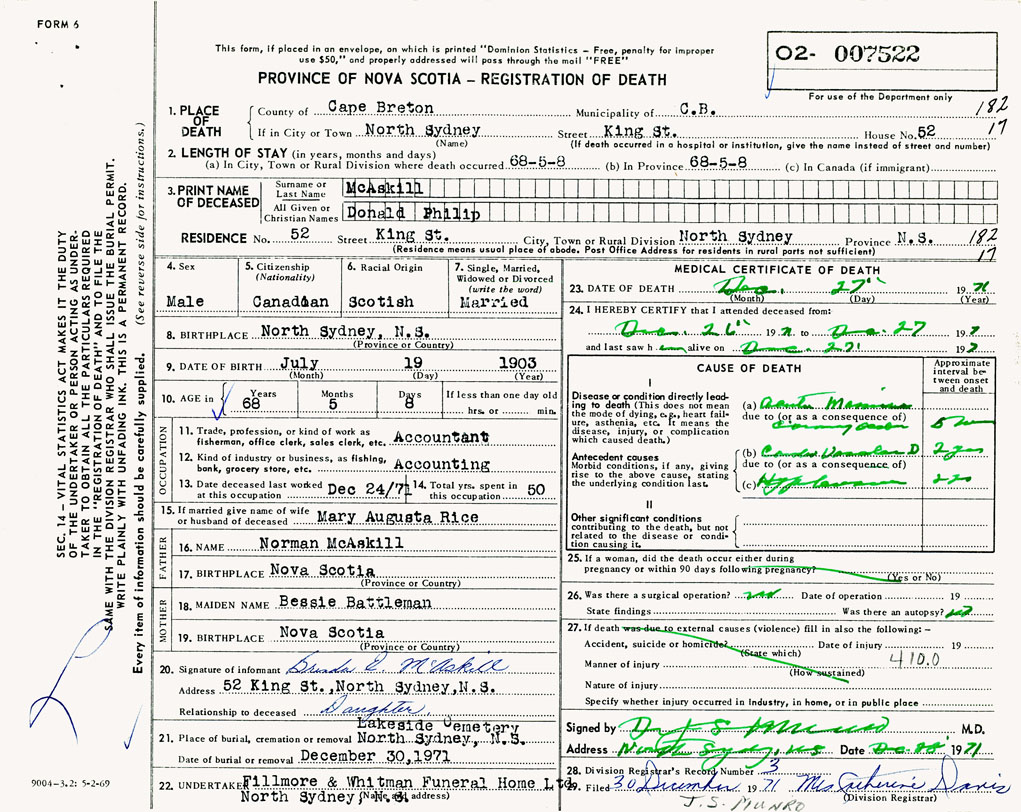 FORM 6
This form, if placed in an envelope, on which is printed "Dominion Statistics – Free, penalty for improper
use $50," and properly addressed will pass through the mail "FREE"
PROVINCE OF NOVA SCOTIA – REGISTRATION OF DEATH
02- 007522
For use of the Department only
SEC. 14 – VITAL STATISTICS ACT MAKES IT THE DUTY
OF THE UNDERTAKER OR PERSON ACTING AS UNDER-
TAKER TO OBTAIN ALL THE PARTICULARS REQUIRED
IN THE "REGISTRATION OF DEATH" AND TO FILE THE
SAME WITH THE DIVISION REGISTRAR WHO SHALL ISSUE THE BURIAL PERMIT.
WRITE PLAINLY WITH UNFADING INK. THIS IS A PERMANENT RECORD.
Every item of information should be carefully supplied. (See reverse side for instructions.)
1. PLACE OF DEATH County of Cape Breton Municipality of C.B. 182
If in City or Town North Sydney Street King St. House No. 52 17
(Name) (If death occurred in a hospital or institution, give the name instead of street and number)
2. LENGTH OF STAY (in years, months and days)
(a) In City, Town or Rural Division where death occurred 68-5-8 (b) In Province 68-5-8 (c) In Canada (if immigrant)
3. PRINT NAME OF DECEASED Surname or Last Name McAskill
All Given or Christian Names Donald Philip
RESIDENCE No. 52 Street King St. City, Town or Rural Division North Sydney Province N.S. 182
(Residence means usual place of abode. Post Office Address for residents in rural parts not sufficient) 17
4. Sex Male
5. Citizenship (Nationality) Canadian
6. Racial Origin Scotish
7. Single, Married, Widowed or Divorced (write the word) Married
8. BIRTHPLACE North Sydney, N.S.
(Province or Country)
9. DATE OF BIRTH July 19 1903
(Month) (Day) (Year)
10. AGE in Years 68 Months 5 Days 8 If less than one day old
hrs. or min.
OCCUPATION
11. Trade, profession, or kind of work as
fisherman, office clerk, sales clerk, etc. Accountant
12. Kind of industry or business, as fishing,
bank, grocery store, etc. Accounting
13. Date deceased last worked at this occupation Dec 24/71 14. Total yrs. spent in this occupation 50
15. If married give name of wife
or husband of deceased Mary Augusta Rice
FATHER
16. NAME Norman McAskill
17. BIRTHPLACE Nova Scotia
(Province or Country)
MOTHER
18. MAIDEN NAME Bessie Battleman
19. BIRTHPLACE Nova Scotia
(Province or Country)
20. Signature of informant Brenda E. McAskill
Address 52 King St.,North Sydney,N.S.
Relationship to deceased Daughter
Lakeside Cemetery
21. Place of burial, cremation or removal North Sydney, N.S.
Date of burial or removal December 30,1971
22. UNDERTAKER Fillmore & Whitman Funeral Home Ltd.
North Sydney, N.S.
(Name and address)
9004-3.2: 5-2-69
MEDICAL CERTIFICATE OF DEATH
23. DATE OF DEATH Dec. 27th 1971
(Month) (Day) (Year)
24. I HEREBY CERTIFY that I attended deceased from:
Dec. 26th 19 71 to Dec. 27 197
and last saw h alive on Dec. 27 197
CAUSE OF DEATH
Approximate interval between onset and death
I
Disease or condition directly leading to death (This does not mean the mode of dying, e.g., heart failure, asthenia, etc. It means the disease, injury, or complication which caused death.)
(a) Acute
due to (or as a consequence of)
Antecedent causes
Morbid conditions, if any, giving rise to the above cause, stating the underlying condition last.
(b) Vascular D 2 yrs
due to (or as a consequence of)
(c)
II
Other significant conditions
contributing to the death, but not related to the disease or condition causing it.
25. If a woman, did the death occur either during
pregnancy or within 90 days following pregnancy?
(Yes or No)
26. Was there a surgical operation? no Date of operation 19
State findings Was there an autopsy? no
27. If death was due to external causes (violence) fill in also the following: –
Accident, suicide or homicide? Date of injury 19
(State which)
Manner of injury 410.0
(How sustained)
Nature of injury
Specify whether injury occurred in Industry, in home, or in public place
Signed by Dr J S Munro M.D.
Address North Sydney, NS Date Dec 1971
28. Division Registrar's Record Number 3
29. Filed 30 December 1971 Mrs Catherine Davis
(Division Registrar)
J.S. MUNRO